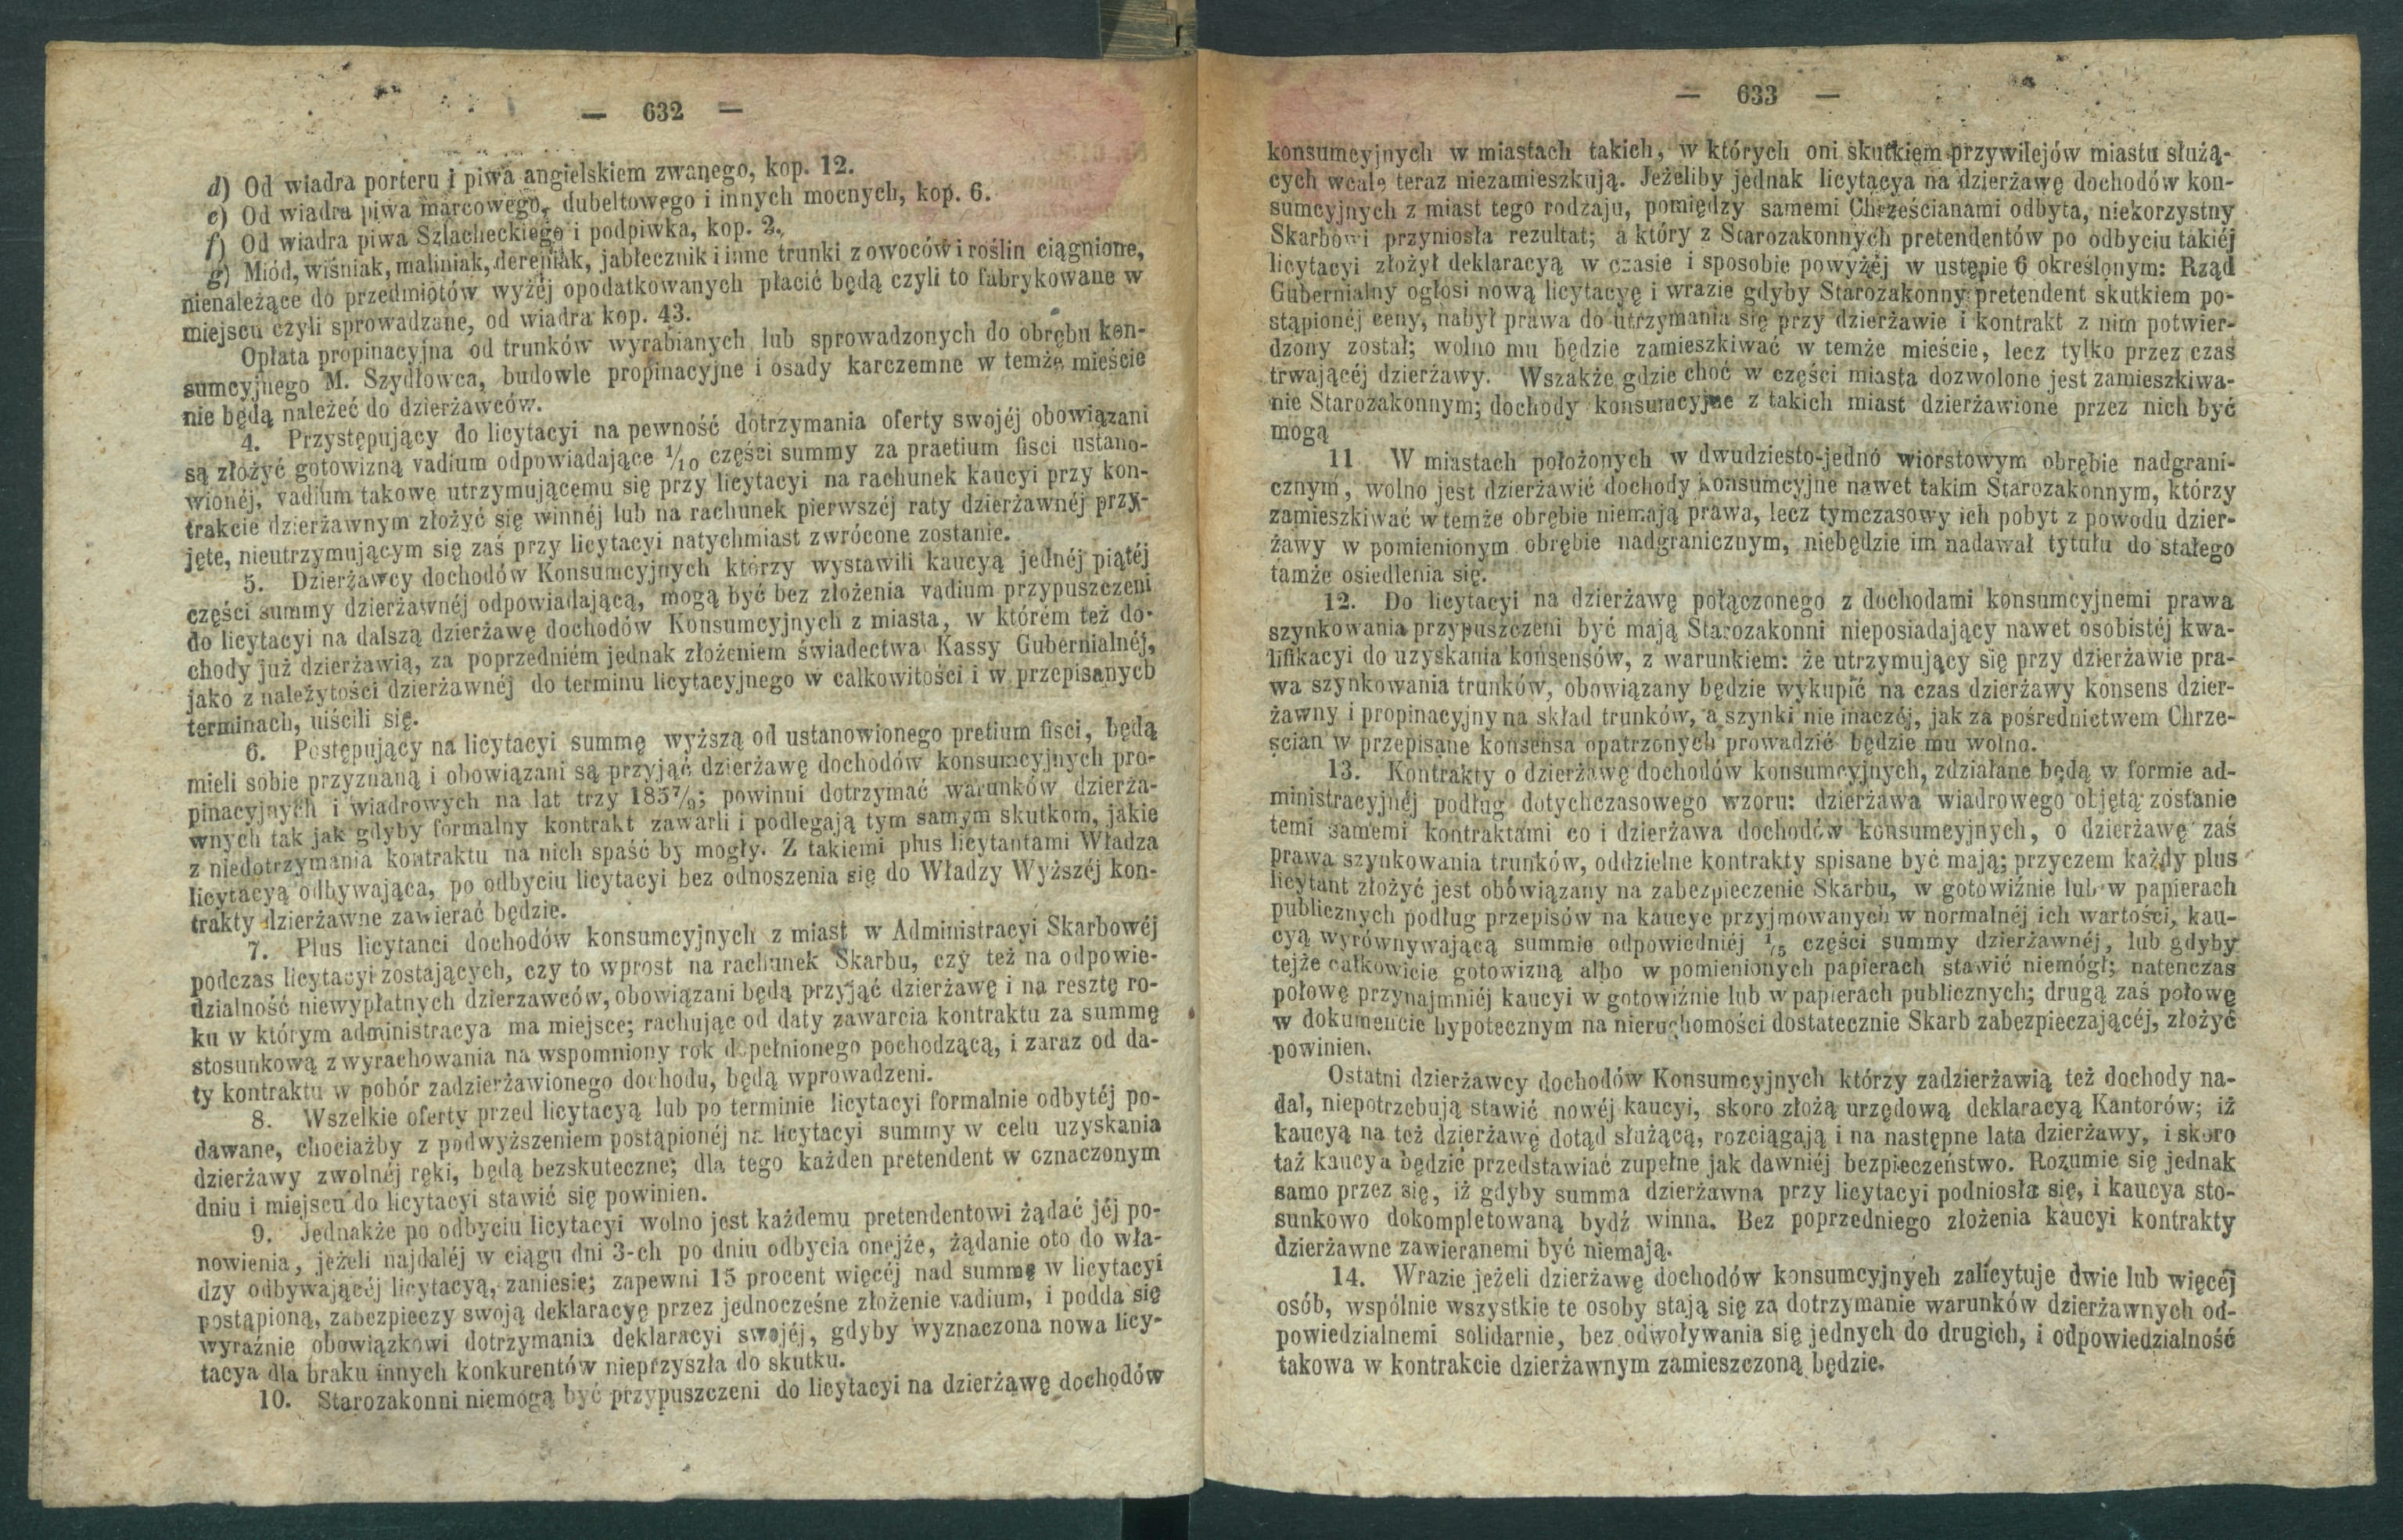 — 632 —
d) Od wiadra porteru i piwa angielskiem zwanego, kop. 12.
e) Od wiadra piwa marcowego, dubeltowego i innych mocnych, kop. 6.
f) Od wiadra piwa Szlacheckiego i podpiwka, kop. 2.
g) Miód, wiśniak, maliniak, dereniak, jabłecznik i inne trunki z owoców i roślin ciągnione,
nienależące do przedmiotów wyżéj opodatkowanych płacić będą czyli to fabrykowane w
miejscu czyli sprowadzane, od wiadra kop. 43.
Opłata propinacyjna od trunków wyrabianych lub sprowadzonych do obrębu kon-
sumcyjnego M. Szydłowca, budowle propinacyjne i osady karczemne w temże mieście
nie będą należeć do dzierżawców.
4. Przystępujący do licytacyi na pewność dotrzymania oferty swojéj obowiązani
są złożyć gotowizną vadium odpowiadające 1/10 części summy za praetium fisci ustano-
wionéj, vadium takowe utrzymującemu się przy licytacyi na rachunek kaucyi przy kon-
trakcie dzierżawnym złożyć się winnéj lub na rachunek pierwszéj raty dzierżawnéj przy-
jęte, nieutrzymującym się zaś przy licytacyi natychmiast zwrócone zostanie.
5. Dzierżawcy dochodów Konsumcyjnych którzy wystawili kaucyą jednéj piątéj
części summy dzierżawnéj odpowiadającą, mogą być bez złożenia vadium przypuszczeni
do licytacyi na dalszą dzierżawę dochodów Konsumcyjnych z miasta, w którém też do-
chody już dzierżawią, za poprzedniém jednak złożeniem świadectwa Kassy Gubernialnéj,
jako z należytości dzierżawnéj do terminu licytacyjnego w całkowitości i w przepisanych
terminach, uiścili się.
6. Postępujący na licytacyi summę wyższą od ustanowionego pretium fisci, będą
mieli sobie przyznaną i obowiązani są przyjąć dzierżawę dochodów konsumcyjnych pro-
pinacyjnych i wiadrowych na lat trzy 1857/9; powinni dotrzymać warunków dzierża-
wnych tak jak gdyby formalny kontrakt zawarli i podlegają tym samym skutkom, jakie
z niedotrzymania kontraktu na nich spaść by mogły. Z takiemi plus licytantami Władza
licytacyą odbywająca, po odbyciu licytacyi bez odnoszenia się do Władzy Wyższéj kon-
trakty dzierżawne zawierać będzie.
7. Plus licytanci dochodów konsumcyjnych z miast w Administracyi Skarbowéj
podczas licytacyi zostających, czy to wprost na rachunek Skarbu, czy też na odpowie-
dzialność niewypłatnych dzierzawców, obowiązani będą przyjąć dzierżawę i na resztę ro-
ku w którym administracya ma miejsce; rachując od daty zawarcia kontraktu za summę
stosunkową z wyrachowania na wspomniony rok dopełnionego pochodzącą, i zaraz od da-
ty kontraktu w pobór zadzierżawionego dochodu, będą wprowadzeni.
8. Wszelkie oferty przed licytacyą lub po terminie licytacyi formalnie odbytéj po-
dawane, chociażby z podwyższeniem postąpionéj na licytacyi summy w celu uzyskania
dzierżawy zwolnéj ręki, będą bezskuteczne; dla tego każden pretendent w oznaczonym
dniu i miejscu do licytacyi stawić się powinien.
9. Jednakże po odbyciu licytacyi wolno jest każdemu pretendentowi żądać jéj po-
nowienia, jeżeli najdaléj w ciągu dni 3-ch po dniu odbycia onejże, żądanie oto do wła-
dzy odbywającéj licytacyą, zaniesie; zapewni 15 procent więcéj nad summę w licytacyi
postąpioną, zabezpieczy swoją deklaracyę przez jednocześne złożenie vadium, i podda się
wyraźnie obowiązkowi dotrzymania deklaracyi swojéj, gdyby wyznaczona nowa licy-
tacya dla braku innych konkurentów nieprzyszła do skutku.
10. Starozakonni niemogą być przypuszczeni do licytacyi na dzierżawę dochodów
— 633 —
konsumcyjnych w miastach takich, w których oni skutkiem przywilejów miastu służą-
cych wcale teraz niezamieszkują. Jeżeliby jednak licytacya na dzierżawę dochodów kon-
sumcyjnych z miast tego rodzaju, pomiędzy samemi Chrześcianami odbyta, niekorzystny
Skarbowi przyniosła rezultat; a który z Starozakonnych pretendentów po odbyciu takiéj
licytacyi złożył deklaracyą w czasie i sposobie powyżéj w ustępie 6 określonym: Rząd
Gubernialny ogłosi nową licytacyę i wrazie gdyby Starozakonny pretendent skutkiem po-
stąpionéj ceny, nabył prawa do utrzymania się przy dzierżawie i kontrakt z nim potwier-
dzony został; wolno mu będzie zamieszkiwać w temże mieście, lecz tylko przez czas
trwającéj dzierżawy. Wszakże gdzie choć w części miasta dozwolone jest zamieszkiwa-
nie Starozakonnym; dochody konsumcyjne z takich miast dzierżawione przez nich być
mogą
11 W miastach położonych w dwudziesto-jedno wiorstowym obrębie nadgrani-
cznym, wolno jest dzierżawić dochody konsumcyjne nawet takim Starozakonnym, którzy
zamieszkiwać w temże obrębie niemają prawa, lecz tymczasowy ich pobyt z powodu dzier-
żawy w pomienionym obrębie nadgranicznym, niebędzie im nadawał tytułu do stałego
tamże osiedlenia się.
12. Do licytacyi na dzierżawę połączonego z dochodami konsumcyjnemi prawa
szynkowania przypuszczeni być mają Starozakonni nieposiadający nawet osobistéj kwa-
lifikacyi do uzyskania konsensów, z warunkiem: że utrzymujący się przy dzierżawie pra-
wa szynkowania trunków, obowiązany będzie wykupić na czas dzierżawy konsens dzier-
żawny i propinacyjny na skład trunków, a szynki nie inaczéj, jak za pośrednictwem Chrze-
ścian w przepisane konsensa opatrzonych prowadzić będzie mu wolno.
13. Kontrakty o dzierżawę dochodów konsumcyjnych, zdziałane będą w formie ad-
ministracyjnéj podług dotychczasowego wzoru: dzierżawa wiadrowego objętą zostanie
temi samemi kontraktami co i dzierżawa dochodów konsumcyjnych, o dzierżawę zaś
prawa szynkowania trunków, oddzielne kontrakty spisane być mają; przyczem każdy plus
licytant złożyć jest obowiązany na zabezpieczenie Skarbu, w gotowiźnie lub w papierach
publicznych podług przepisów na kaucye przyjmowanych w normalnéj ich wartości, kau-
cyą wyrównywającą summie odpowiedniéj 1/5 części summy dzierżawnéj, lub gdyby
tejże całkowicie gotowizną albo w pomienionych papierach stawić niemógł; natenczas
połowę przynajmniéj kaucyi w gotowiźnie lub w papierach publicznych; drugą zaś połowę
w dokumencie hypotecznym na nieruchomości dostatecznie Skarb zabezpieczającéj, złożyć
powinien.
Ostatni dzierżawcy dochodów Konsumcyjnych którzy zadzierżawią też dochody na-
dal, niepotrzebują stawić nowéj kaucyi, skoro złożą urzędową deklaracyą Kantorów; iż
kaucyą na też dzierżawę dotąd służącą, rozciągają i na następne lata dzierżawy, i skoro
taż kaucya będzie przedstawiać zupełne jak dawniéj bezpieczeństwo. Rozumie się jednak
samo przez się, iż gdyby summa dzierżawna przy licytacyi podniosła się, i kaucya sto-
sunkowo dokompletowaną bydź winna. Bez poprzedniego złożenia kaucyi kontrakty
dzierżawne zawieranemi być niemają.
14. Wrazie jeżeli dzierżawę dochodów konsumcyjnych zalicytuje dwie lub więcéj
osób, wspólnie wszystkie te osoby stają się za dotrzymanie warunków dzierżawnych od-
powiedzialnemi solidarnie, bez odwoływania się jednych do drugich, i odpowiedzialność
takowa w kontrakcie dzierżawnym zamieszczoną będzie.